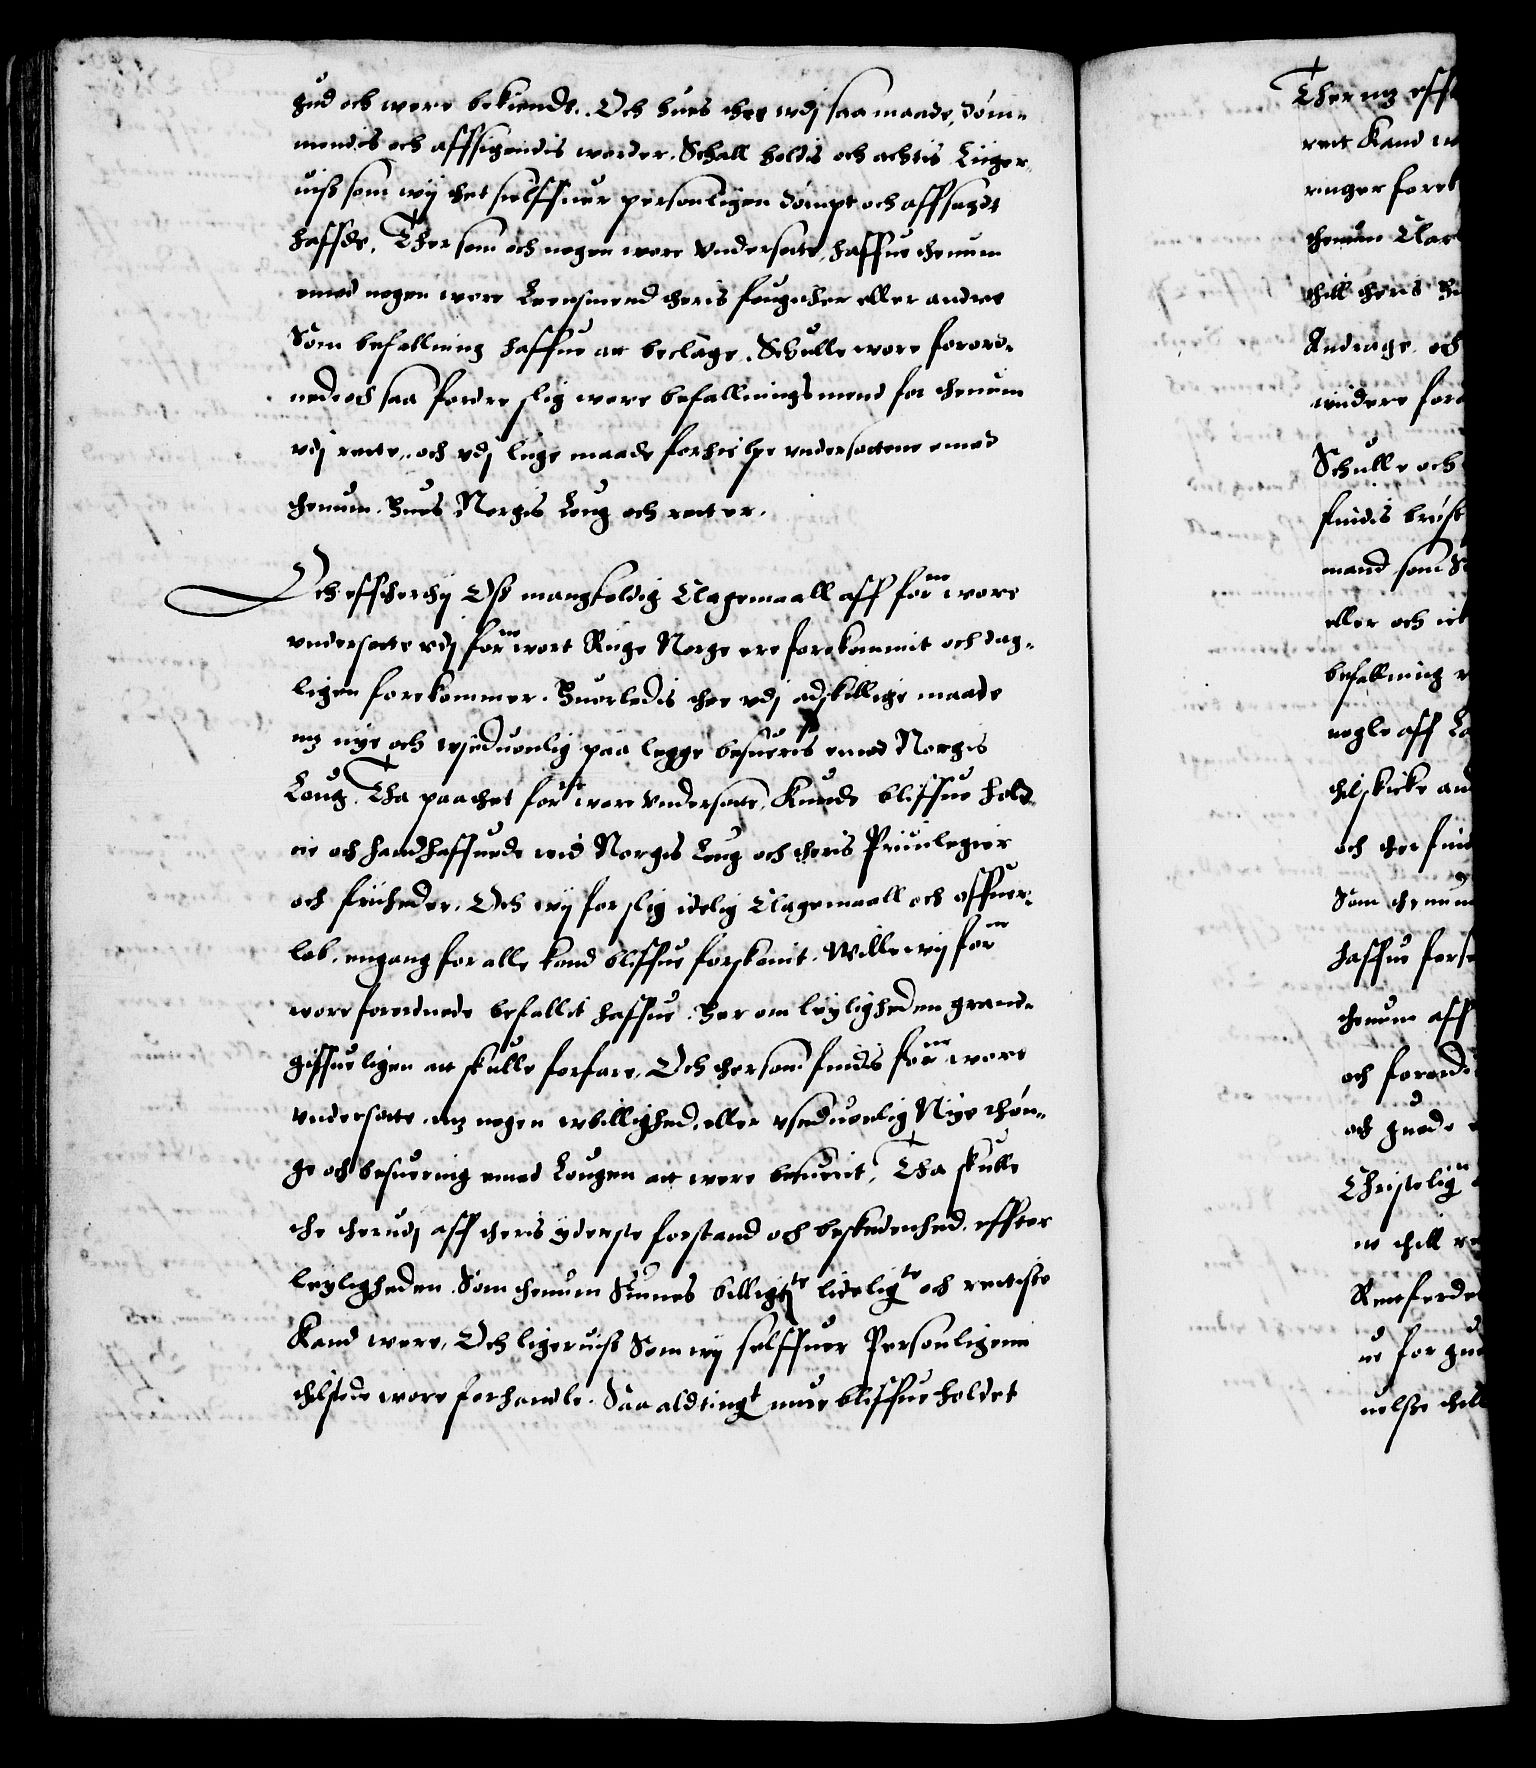 gud och were bekiendt. Och hues the udj saa maade, döm-
mendis och affsigendis worder. Schall holdis och achtis Liiger
uiss som wij thet sielffuer personligen dömpt och affsagdt
haffde. Ther som och nogen wore vndersotte, haffue thenum
emod nogen wore Leensmend theris fougether eller andre
Som befallning haffue att beclage. Schulle wore foror-
nede och saa fordre slig wore befallningsmend for thenum
vdj rette, och vdj liige maade forhielpe vndersottene emod
thenum. Hues Norgis Loug och retter.
Och effcherthij Oss mangfoldig Clagemaall aff forne wore
vndersotte vdj forne wort Riige Norge ere forekommit och dag-
ligen forekommer. Huorledis the vdj adskillige maade
mz nye och wseduonlig paa legge besueris emod Norgis
Loug. Tha paa thet forne wore vndersotte, Kunde bliffue hold-
ne och handhaffuede wed Norgis Loug och theris Priuilegier
och friiheder. Och wij for slig idelig Clagemaall och offuer-
løb, engang for alle kand bliffue forskonit. Wille wij forne
wore forordnede befallit haffue. Her om leyligheden grand-
giffueligen att skulle forfare. Och thersom findis forne wore
vndersotte mz nogen wbillighed, eller vseduonlig Niye thön-
ge och besuering emod Lougen att were besuerit, Tha skulle
the therudj aff theris yderste forstand och beskedenhed, effter
leyligheden. Som thenum Siunes billigste lideligste och rettiste
Kand were, Och ligeruiss Som wij selffuer Personligenn
thilstede wore forhandle. Saa aldtingt maa bliffue holdet
Ther mz efft
rett Kand w
ringer foreb
thenum Clar
thill theris
Andrage och
uindere for
Schulle och
findis brøst
mand som S
eller och ick
befallning
nogle aff Lo
thilskicke and
och ther find
Som thenum
haffue forse
thenum aff
och forord
och gunde
Christelig
w thill
Rettferde
ue for gud
uelsse thill